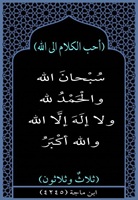 (أحب الكلام الى الله)
سُبْحَانَ الله
والْحَمْدُ لله
ولا إلهَ إلَّا الله
والله أكْبَرُ
(ثلاثٌ وثلاثون)
ابن ماجة (٤٢٤٥)